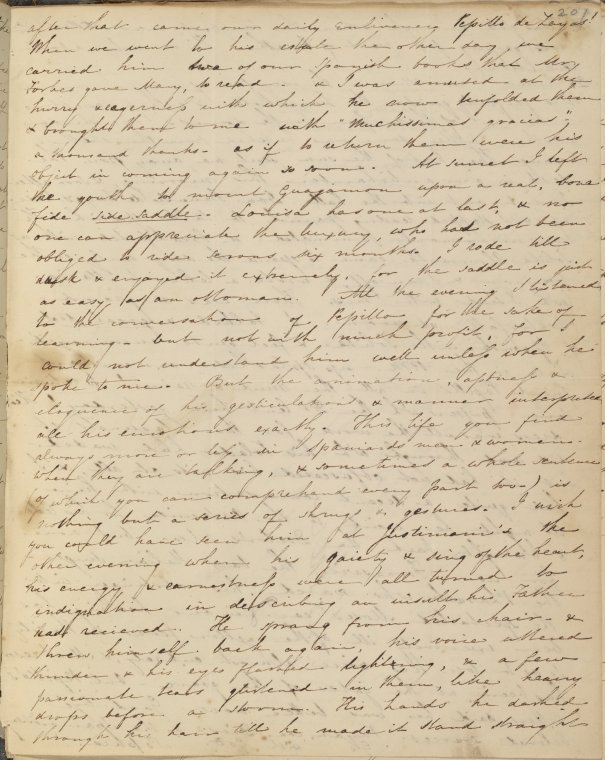 201
after that - came our daily Enlivener, Pepillo de Zayas!
When we went to his estate the other day, we
carried him two of our Spanish books that Mr.
Forbes gave Mary, to read. - & I was amused at the
hurry & eagerness with which he now unfolded them
& brought them to me with "Muchissimas gracias",
a thousand thanks - as if to return them were his
object in coming again so soon. At sunset I left
the youth to mount Guagamon upon a real, bona
fide side saddle. Louisa has one at last, & no
one can appreciate the luxury, who had not been
obliged to ride serons six months. I rode till
dusk & enjoyed it extremely, for the saddle is just
as easy as an ottoman. All the evening I listened
to the conversation of Pepillo for the sake of
learning - but not with much profit, for I
could not understand him well unless when he
spoke to me. But the animation, aptness &
eloquence of his gesticulation & manner interpreted
all his emotions exactly. This life you find
always more or less in Spaniards men & women.
when they are talking, & sometimes a whole sentence
(of which you can comprehend every part too -) is
nothing but a series of shrugs & gestures. I wish
you could have seen him at Justiniani's the
other evening when his gaiety & sing of the heart,
his energy & earnestness were all turned to
indignation in describing an insult his Father
had recieved. He sprang from his chair - &
threw himself back again, his voice uttered
thunder & his eyes flashed lightning, & a few
passionate tears glistened in them, like heavy
drops before a storm. His hands he dashed
through his hair till he made it stand straight